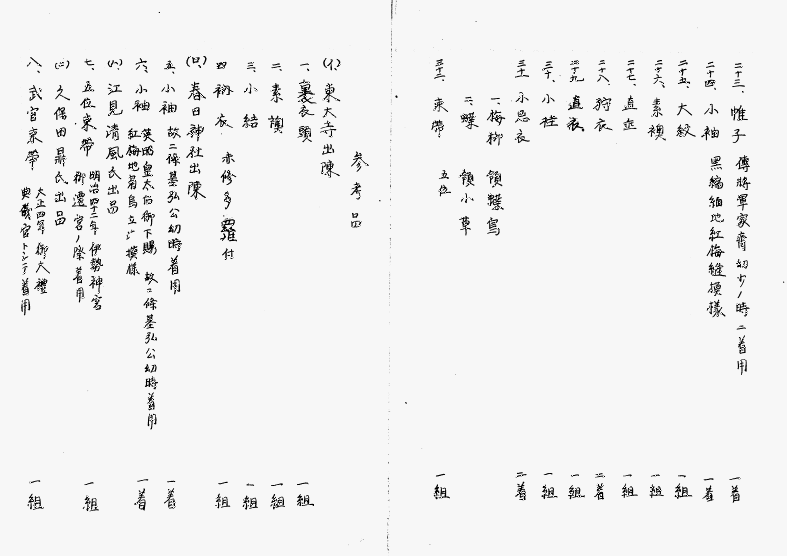 二十三、帷子 傳將軍家齊幼少ノ時ニ着用 一着
二十四、小袖 黒縮緬地紅梅縫模様 一着
二十五、大紋 一組
二十六、素襖 一組
二十七、直垂 一組
二十八、狩衣 二着
二十九、直衣 一組
三十、小袿 一組
三十一、小忌衣 二着
一、梅柳 領蝶鳥
二、蝶 領小草
三十二、束帶 五位 一組
参考品
(イ)東大寺出陳
一、裹衣頭 一組
二、素
三、小結 一組
四、衲衣 亦修多羅付 一組
(ロ)春日神社出陳
五、小袖 故二條基弘公幼時着用 一着
六、小袖 英照皇太后御下賜 故二條基弘公幼時着用
紅梅地菊鳥立木模様 一着
(ハ)江見清風氏出品
七、五位束帶 明治四十二年伊勢神宮
御遷宮ノ際着用 一組
(ニ)久保田鼎氏出品
八、武官束帶 大正四年御大禮
典儀官トシテ着用 一組